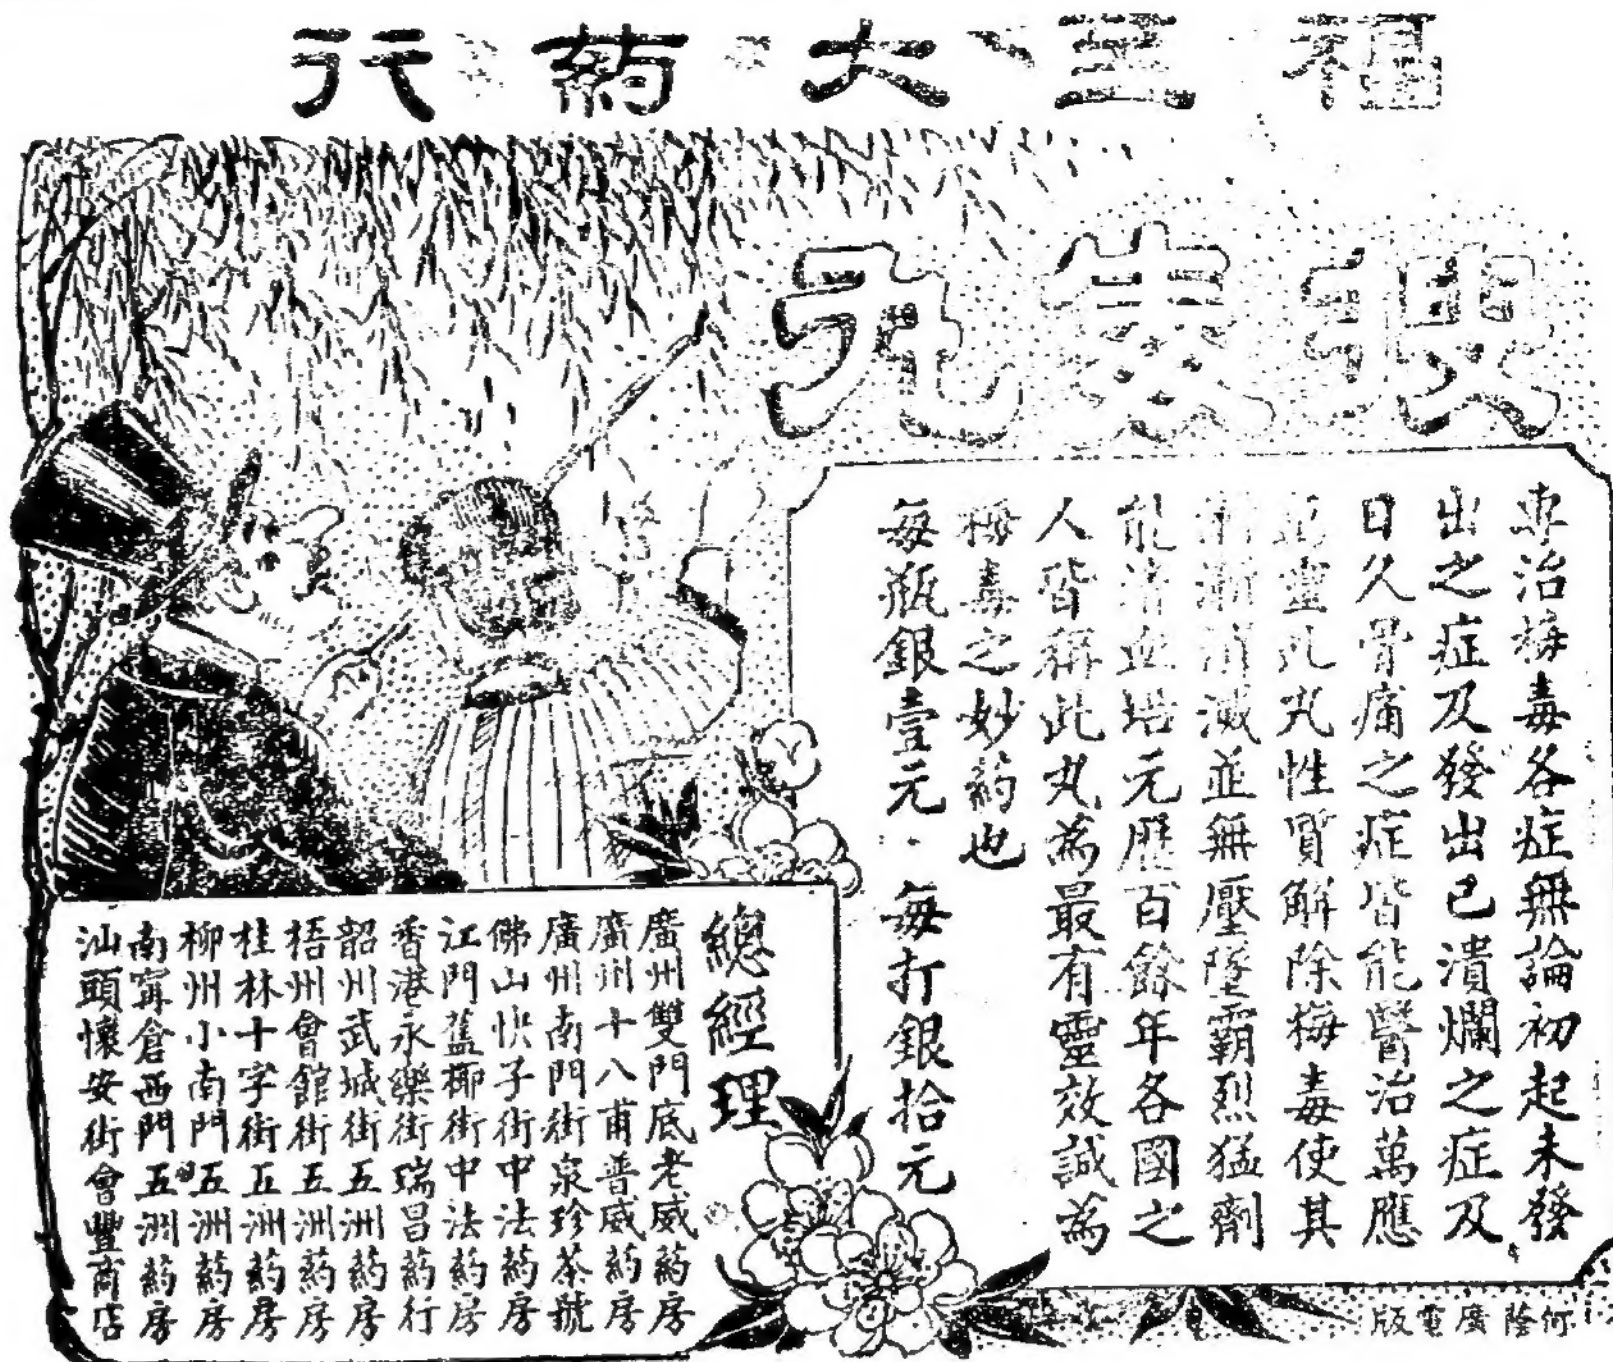 大葯行
專治梅毒各症無論初起未發
出之症及發出已潰爛之症及
日久骨痛之症皆能醫治萬應
靈此丸性質解除梅毒使其
漸漸消滅並無壓墜霸烈猛劑
能清血培元歷百餘年各國之
人皆稱此丸為最有靈效誠為
梅毒之妙葯也
每瓶銀壹元 每打銀拾元
總經理
廣州雙門底老威葯房
廣州十八甫普威葯房
廣州南門街泉珍茶號
佛山快子街中法葯房
江門街中法葯房
香港永樂街瑞昌葯行
韶州武城街五洲葯房
梧州會館街五洲葯房
桂林十字街五洲葯房
柳州小南門五洲葯房
南寧倉西門五洲葯房
汕頭懷安街會豐商店
何蔭廣電版